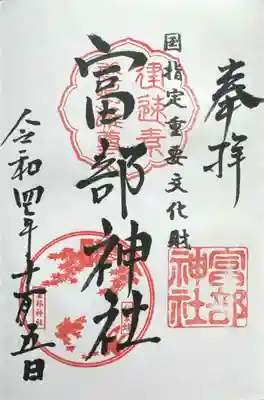 奉拝
国指定重要文化財
富部神社
富部
神社
令和四年十一月五日